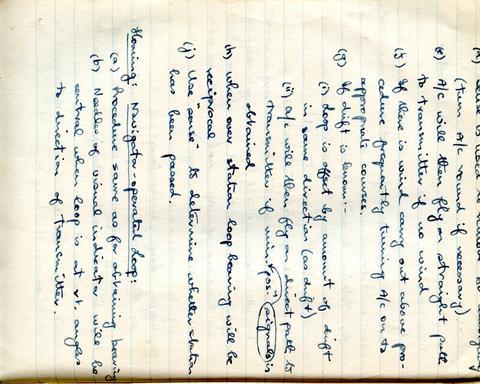 (Turn A/c round if necessary)
(e) A/c will then fly on straight path
to transmitter if no wind
(f) If there is wind carry out above pro-
cedure frequently turning A/c on to
appropriate courses.
(g) If drift is known:-
(i) Loop is offset by amount of drift
in same direction (as drift)
(ii) A/c will then fly on direct path to
transmitter if min. pos. (signals) is
obtained
(h) when over station loop bearing will be
reciprocal
(j) Use "sense" to determine whether station
has been passed.
Homing: Navigator-operated Loop:
(a) Procedure same as for obtaining bearing
(b) Needles of visual indicator will be
central when loop is at rt. angles
to direction of transmitter.